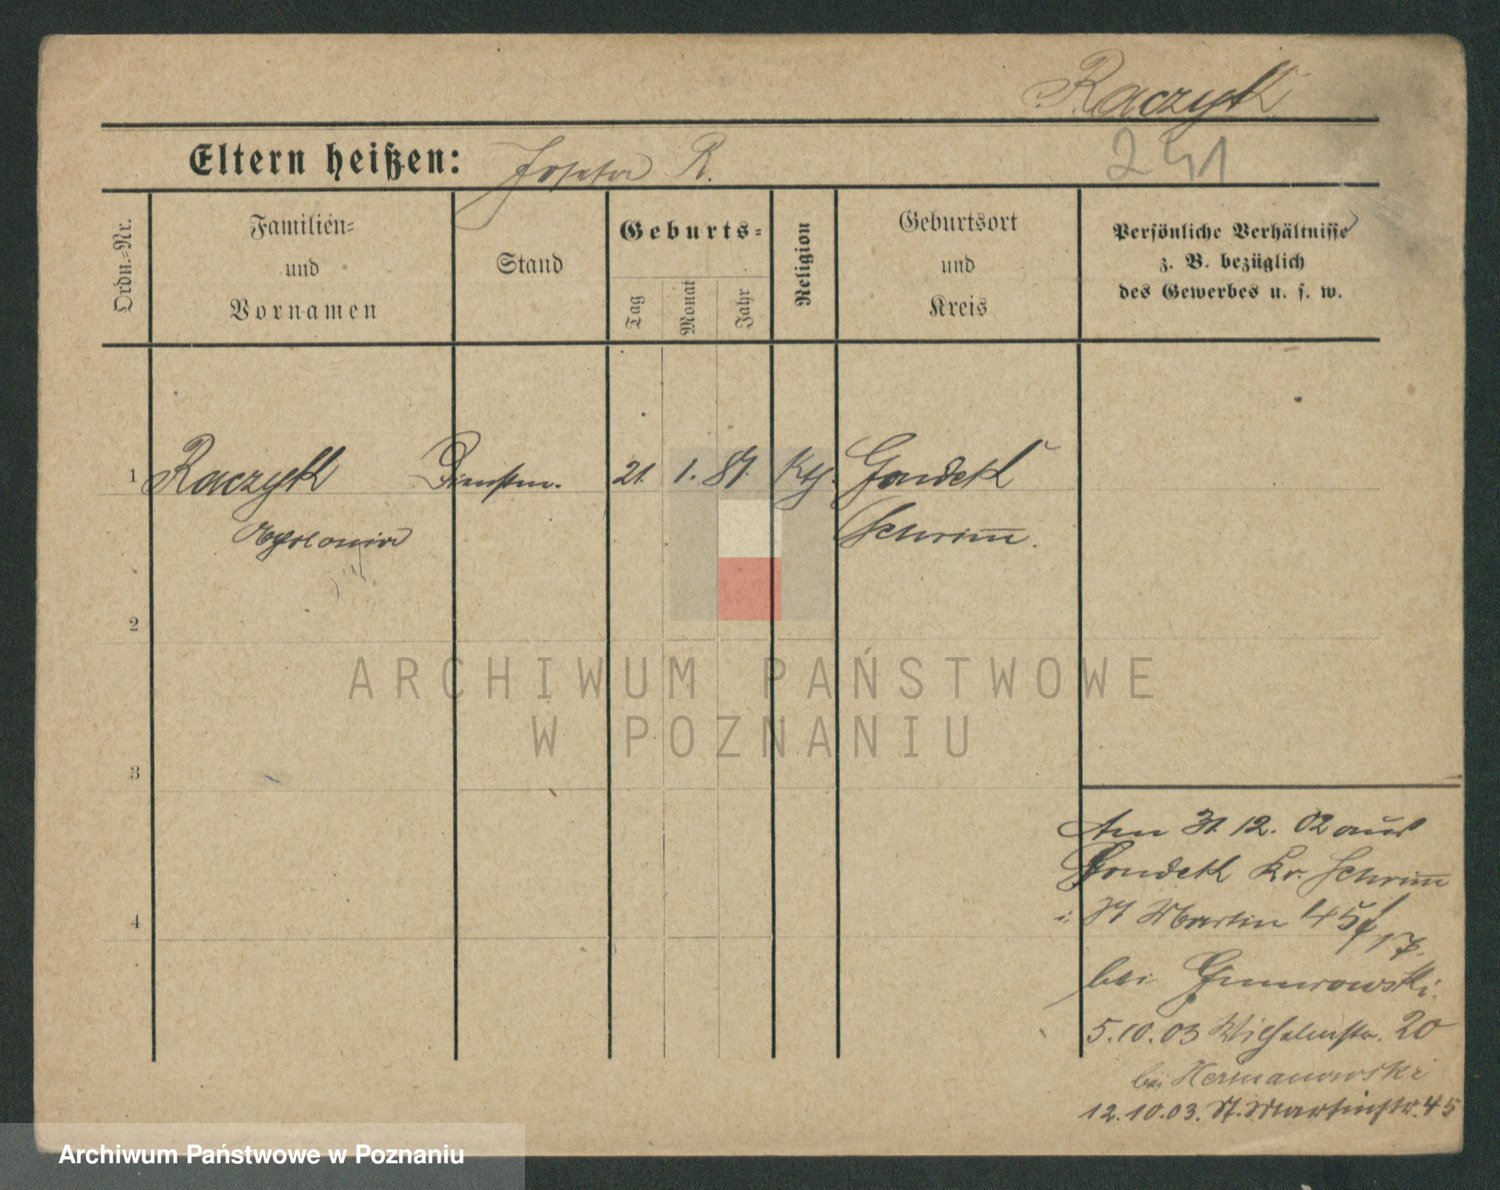 Raczyk
Eltern heißen: Josefa R.
241
Ordn.-Nr.
Familien-
und
Vornamen
Stand
Geburts-
Tag
Monat
Jahr
Religion
Geburtsort
und
Kreis
Persönliche Verhältnisse
z. B. bezüglich
des Gewerbes u. s. w.
1 Raczyk Dienstm. 21. 1. 87. Kth. Gondek
Apolonia Schrimm.
2
3
4
Am 31. 12. 02 aus
Gondek Kr. Schrimm
i. St Martin 45
bei
5.10.03 Wilhelmstr. 20
bei Hermanowski
12.10.03. St. Martinstr. 45
ARCHIWUM PAŃSTWOWE
W POZNANIU
Archiwum Państwowe w Poznaniu